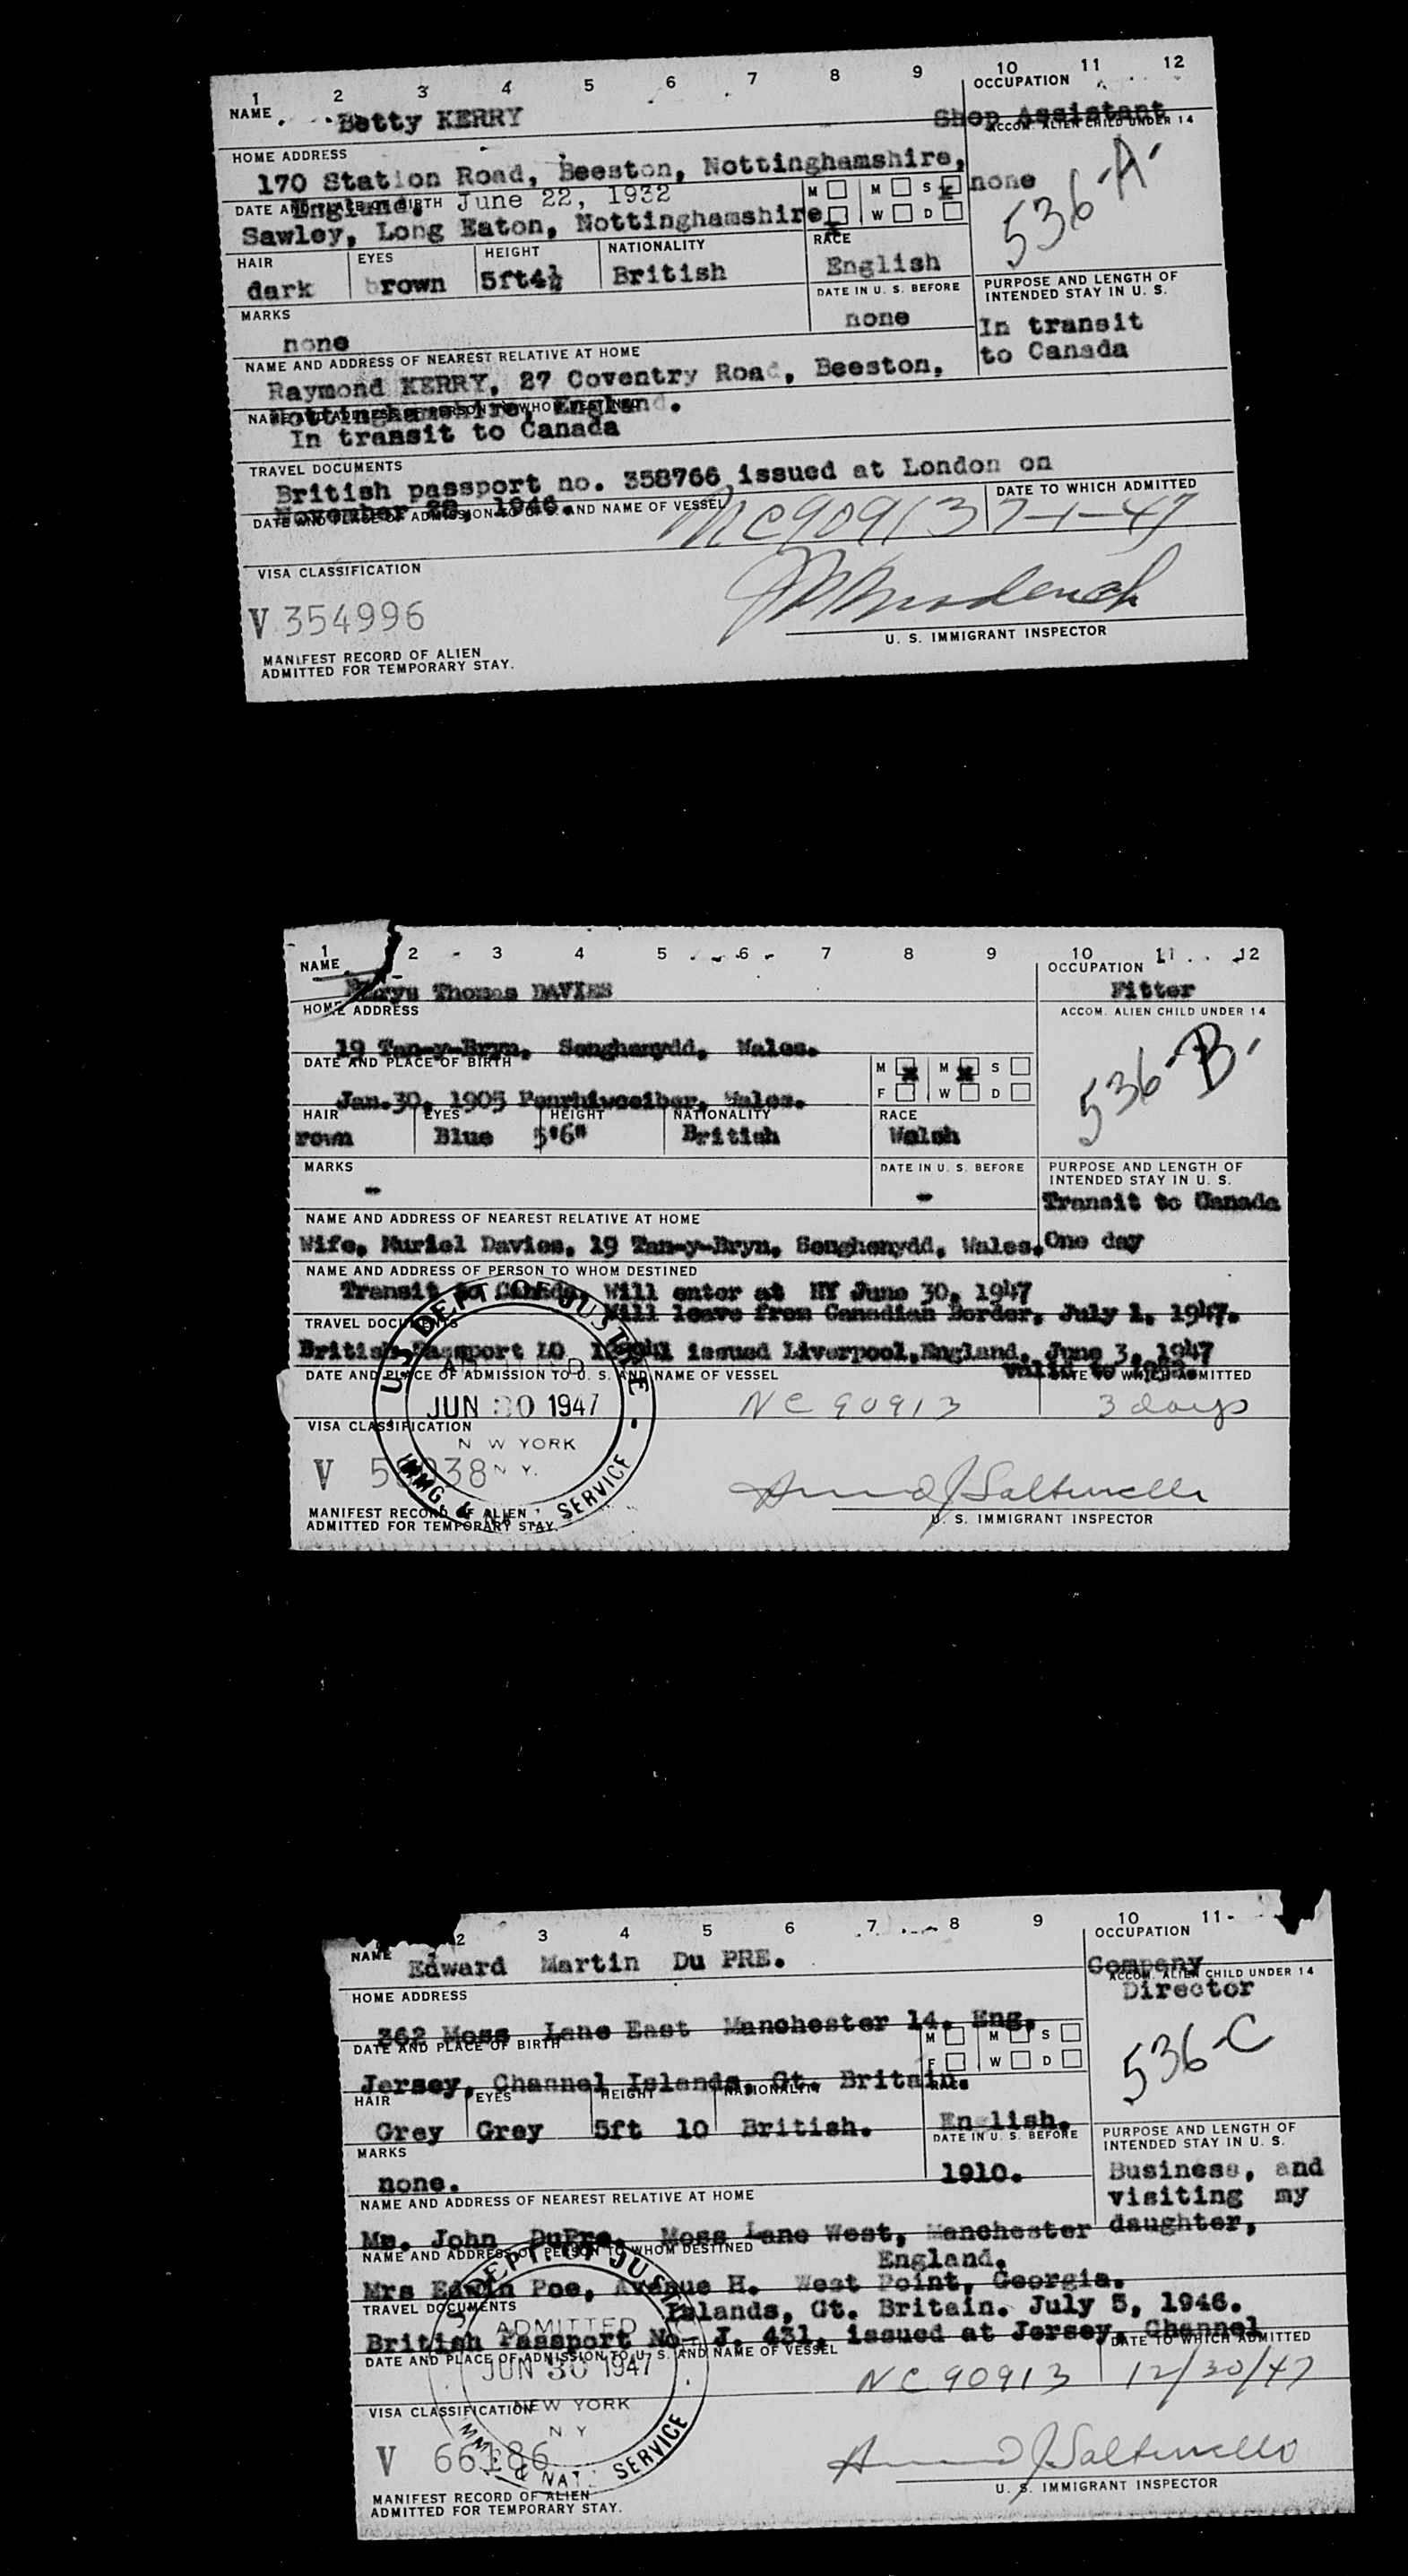 1 2 3 4 5 6 7 8 9 10 11 12
NAME OCCUPATION
Betty KERRY Shop Assistant
ACCOM. ALIEN CHILD UNDER 14
HOME ADDRESS
170 Station Road, Beeston, Nottinghamshire, none
England.
DATE AND PLACE OF BIRTH June 22, 1932
M M S x
Sawley, Long Eaton, Nottinghamshire x W D
536-A
HAIR EYES HEIGHT NATIONALITY RACE
dark brown 5ft4½ British English
MARKS DATE IN U. S. BEFORE PURPOSE AND LENGTH OF
INTENDED STAY IN U. S.
none none In transit
to Canada
NAME AND ADDRESS OF NEAREST RELATIVE AT HOME
Raymond KERRY, 27 Coventry Road, Beeston,
Nottinghamshire, England.
NAME AND ADDRESS OF PERSON TO WHOM DESTINED
In transit to Canada
TRAVEL DOCUMENTS
British passport no. 358766 issued at London on
November 28, 1946.
DATE AND PLACE OF ADMISSION TO U. S. AND NAME OF VESSEL DATE TO WHICH ADMITTED
NC90913 7-1-47
VISA CLASSIFICATION
V 354996
U. S. IMMIGRANT INSPECTOR
MANIFEST RECORD OF ALIEN
ADMITTED FOR TEMPORARY STAY.
1 2 3 4 5 6 7 8 9 10 11 12
NAME OCCUPATION
Thomas DAVIES Fitter
HOME ADDRESS ACCOM. ALIEN CHILD UNDER 14
19 Tan-y-Bryn, Senghenydd, Wales.
DATE AND PLACE OF BIRTH M x M x S
F W D
536-B
Jan.30, 1905 Penrhiwceiber, Wales.
HAIR EYES HEIGHT NATIONALITY RACE
rown Blue 5'6" British Welsh
MARKS DATE IN U. S. BEFORE PURPOSE AND LENGTH OF
INTENDED STAY IN U. S.
- - Transit to Canada
NAME AND ADDRESS OF NEAREST RELATIVE AT HOME
Wife, Muriel Davies, 19 Tan-y-Bryn, Senghenydd, Wales. One day
NAME AND ADDRESS OF PERSON TO WHOM DESTINED
Transit to Canada, Will enter at NY June 30, 1947
Will leave from Canadian Border, July 1, 1947.
TRAVEL DOCUMENTS
British Passport LO issued Liverpool, England, June 3, 1947
valid to 1952.
DATE AND PLACE OF ADMISSION TO U. S. AND NAME OF VESSEL DATE TO WHICH ADMITTED
U.S. DEPT. OF JUSTICE
ADMITTED
JUN 30 1947
NEW YORK
N. Y.
IMMG. & NAT. SERVICE
NC 90913 3 days
VISA CLASSIFICATION
V
U. S. IMMIGRANT INSPECTOR
MANIFEST RECORD OF ALIEN
ADMITTED FOR TEMPORARY STAY.
2 3 4 5 6 7 8 9 10 11
NAME OCCUPATION
Edward Martin Du PRE. Company
ACCOM. ALIEN CHILD UNDER 14
HOME ADDRESS Director
362 Moss Lane East Manchester 14. Eng.
DATE AND PLACE OF BIRTH M M S
F W D
536-C
Jersey, Channel Islands, Gt. Britain.
HAIR EYES HEIGHT NATIONALITY RACE
Grey Grey 5ft 10 British. English.
MARKS DATE IN U. S. BEFORE PURPOSE AND LENGTH OF
INTENDED STAY IN U. S.
none. 1910. Business, and
visiting my
daughter,
NAME AND ADDRESS OF NEAREST RELATIVE AT HOME
Mr. John DuPre, Moss Lane West, Manchester
England.
NAME AND ADDRESS OF PERSON TO WHOM DESTINED
Mrs Edwin Poe, Avenue H. West Point, Georgia.
TRAVEL DOCUMENTS
Islands, Gt. Britain. July 5, 1946.
British Passport No- J. 431, issued at Jersey, Channel
DATE AND PLACE OF ADMISSION TO U. S. AND NAME OF VESSEL DATE TO WHICH ADMITTED
U.S. DEPT. OF JUSTICE
ADMITTED
JUN 30 1947
NEW YORK
N Y
IMM. & NAT. SERVICE
NC 90913 12/30/47
VISA CLASSIFICATION
V 66186
U. S. IMMIGRANT INSPECTOR
MANIFEST RECORD OF ALIEN
ADMITTED FOR TEMPORARY STAY.